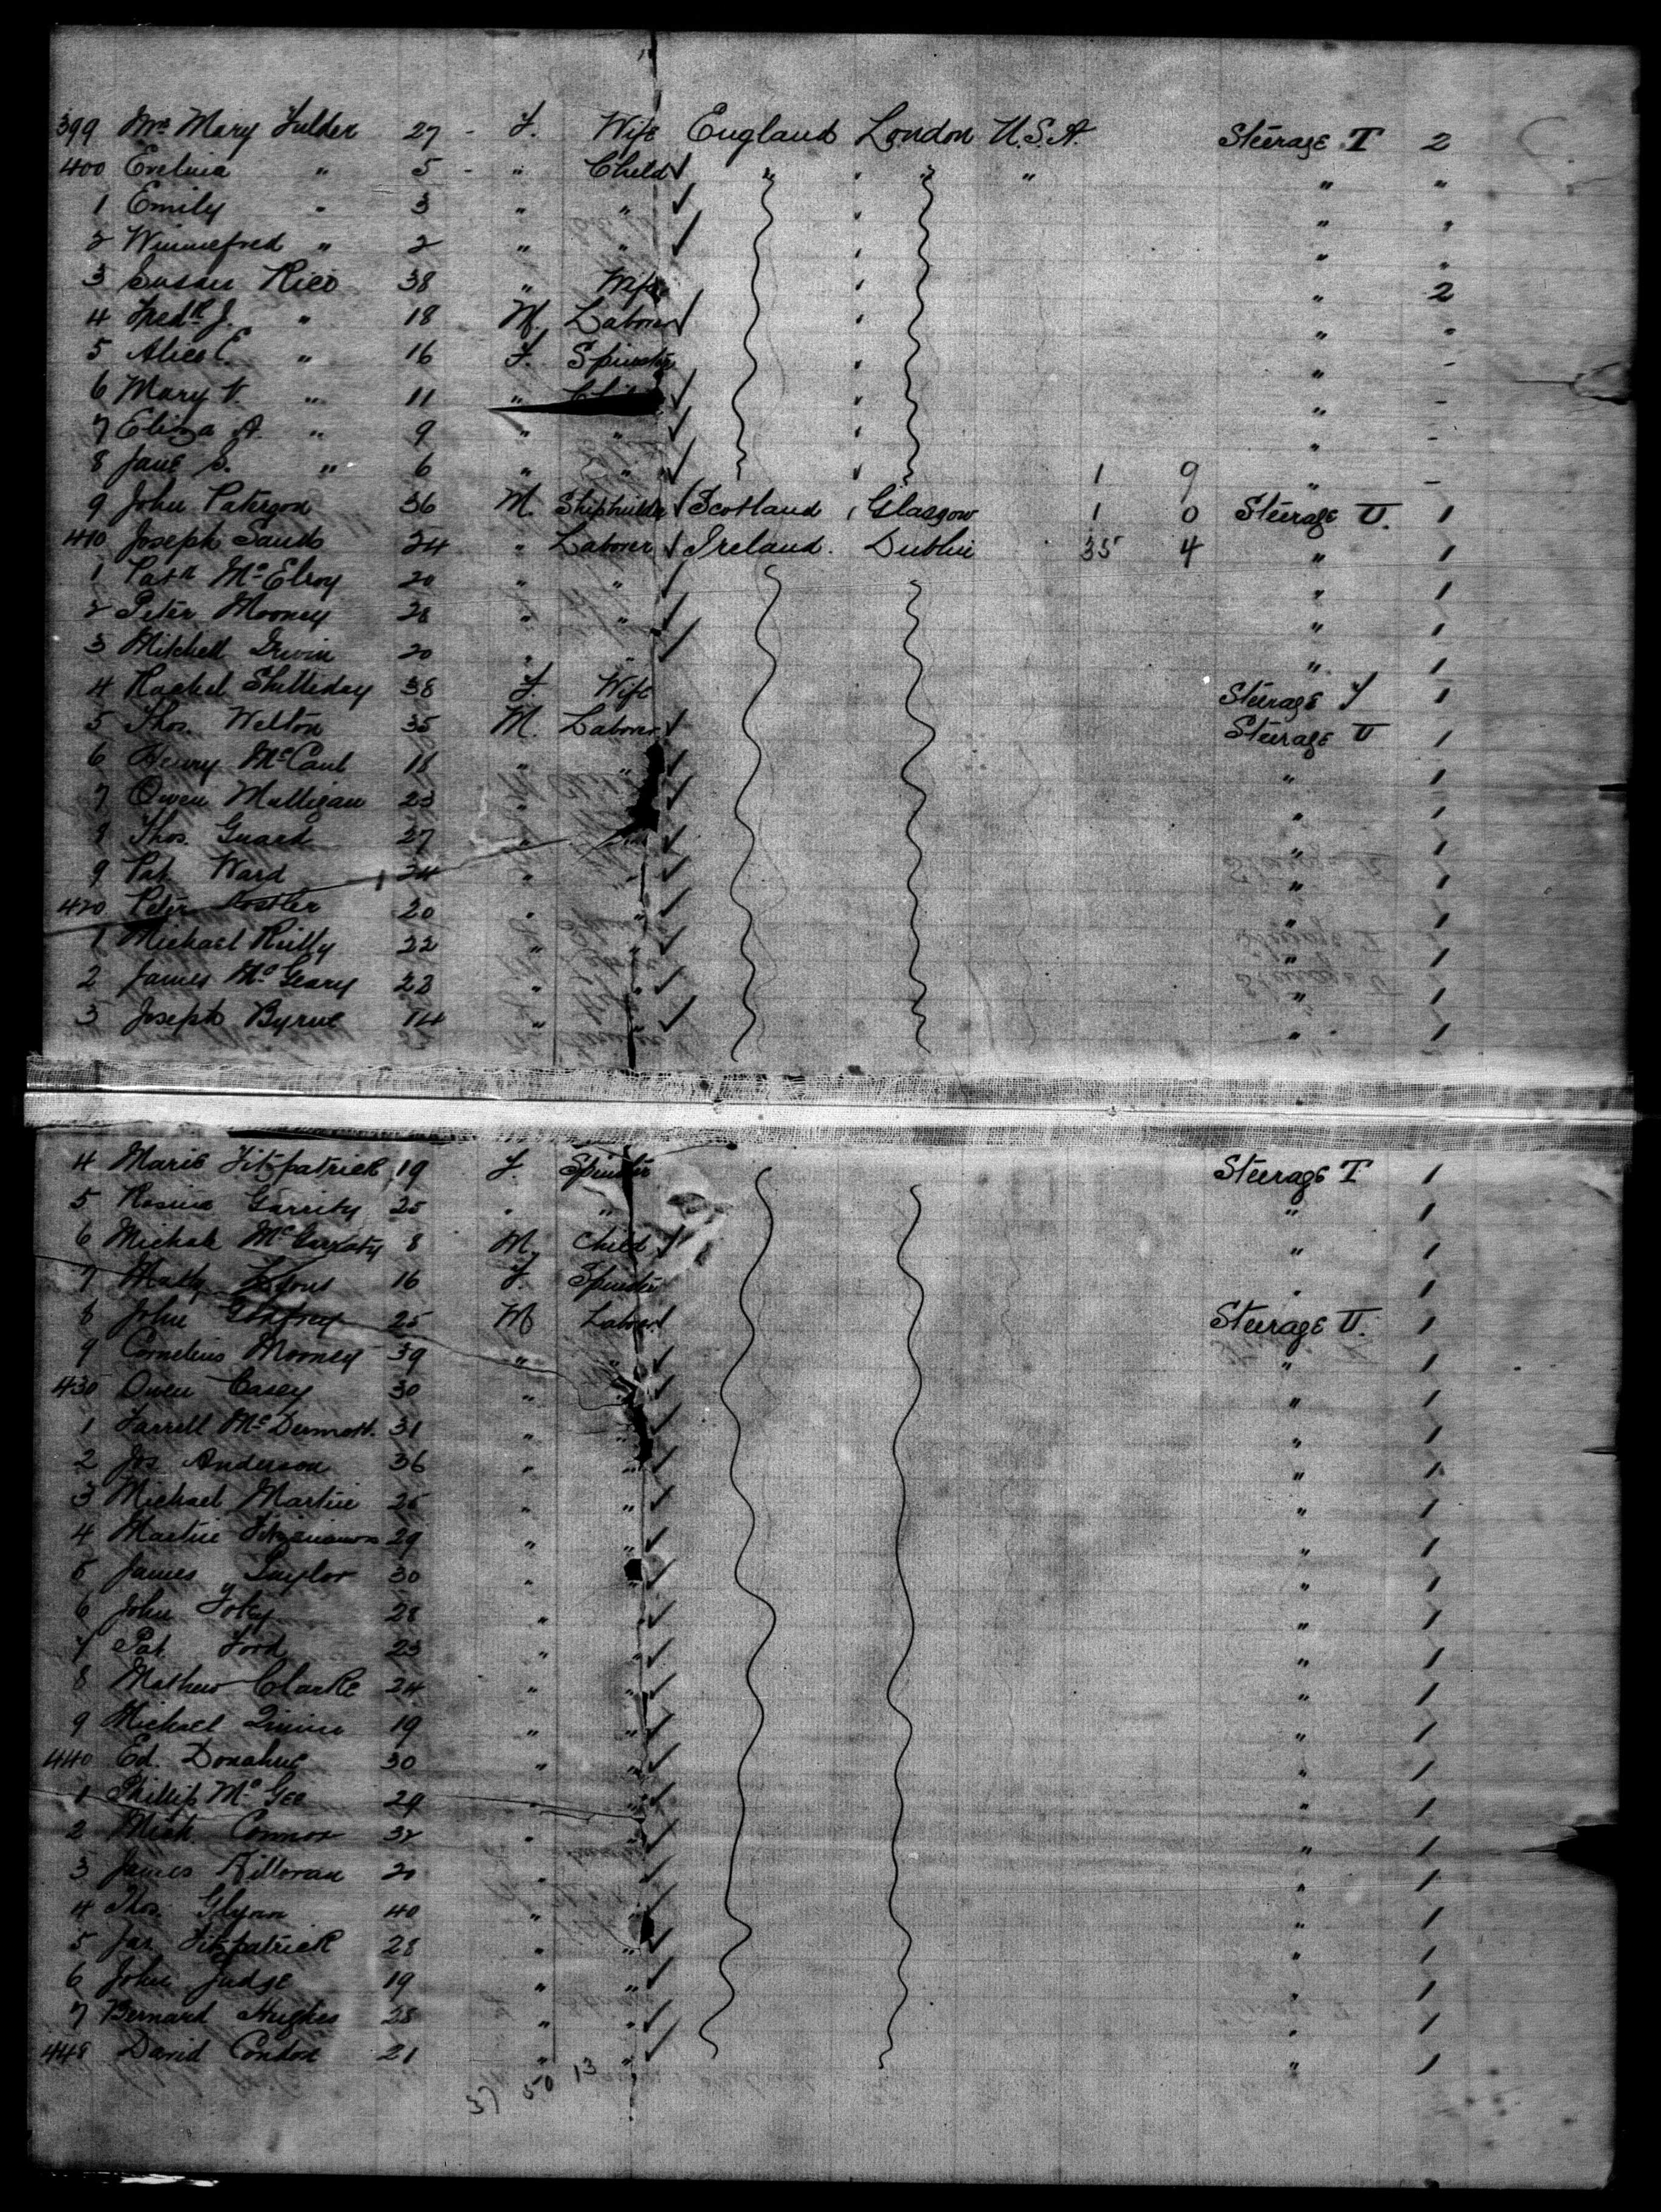 399 Mrs Mary Fulder 27 - F. Wife England London U.S.A. Steerage T 2
400 Evelina " 5 - " Child ✓ " " " " "
1 Emily " 3 " " ✓ " "
2 Winnefred " 2 " " ✓ " "
3 Susan Rice 38 " Wife " 2
4 Fredk J. " 18 M. Laborer ✓ " "
5 Alice E. " 16 F. Spinster " -
6 Mary V. " 11 " ✓ " -
7 Eliza A. " 9 " " ✓ " -
8 Jane S. " 6 " " ✓ 1 9 " -
9 John Paterson 36 M. Shipbuilder ✓ Scotland Glasgow 1 0 Steerage U. 1
410 Joseph Sands 24 " Laborer ✓ Ireland. Dublin 35 4 " 1
1 Patk McElroy 20 " " ✓ " 1
2 Peter Mooney 28 " " ✓ " 1
3 Mitchell Irwin 20 " " ✓ " 1
4 Rachel Shilliday 38 F. Wife Steerage T 1
5 Thos. Welton 35 M. Laborer ✓ Steerage U 1
6 Henry McCaul 18 " " ✓ " 1
7 Owen Mulligan 23 " ✓ " 1
8 Thos. Guard 27 " ✓ " 1
9 Pat. Ward 24 " " ✓ " 1
420 Peter 20 " " ✓ " 1
1 Michael Reilly 22 " " ✓ " 1
2 James McGeary 22 " " ✓ " 1
3 Joseph Byrne 14 " " ✓ " 1
4 Marie Fitzpatrick 19 F. Spinster Steerage T 1
5 Rosina Garrity 25 " " " 1
6 8 M. Child ✓ " 1
7 Lyons 16 F. Spinster " 1
8 John Godfrey 25 M Laborer ✓ Steerage U. 1
9 Cornelius Mooney 39 " " ✓ " 1
430 Owen Casey 30 " " ✓ " 1
1 Farrell McDermott. 31 " " ✓ " 1
2 Jos. Anderson 36 " " ✓ " 1
3 Michael Martin 25 " " ✓ " 1
4 Martin 29 " " ✓ " 1
5 James Taylor 30 " " ✓ " 1
6 John 28 " " ✓ " 1
7 Pat. Ford 23 " " ✓ " 1
8 Mathew Clarke 24 " " ✓ " 1
9 Michael 19 " " ✓ " 1
440 Ed. Donahue 30 " " ✓ " 1
1 Phillip McGee 29 " " ✓ " 1
2 Mick Connor 32 " " ✓ " 1
3 James Killoran 20 " " ✓ " 1
4 Thos. Glynn 40 " " ✓ " 1
5 Jas. Fitzpatrick 28 " " ✓ " 1
6 John Judge 19 " " ✓ " 1
7 Bernard Hughes 28 " " ✓ " 1
448 David Condon 21 " " ✓ " 1
37 50 13